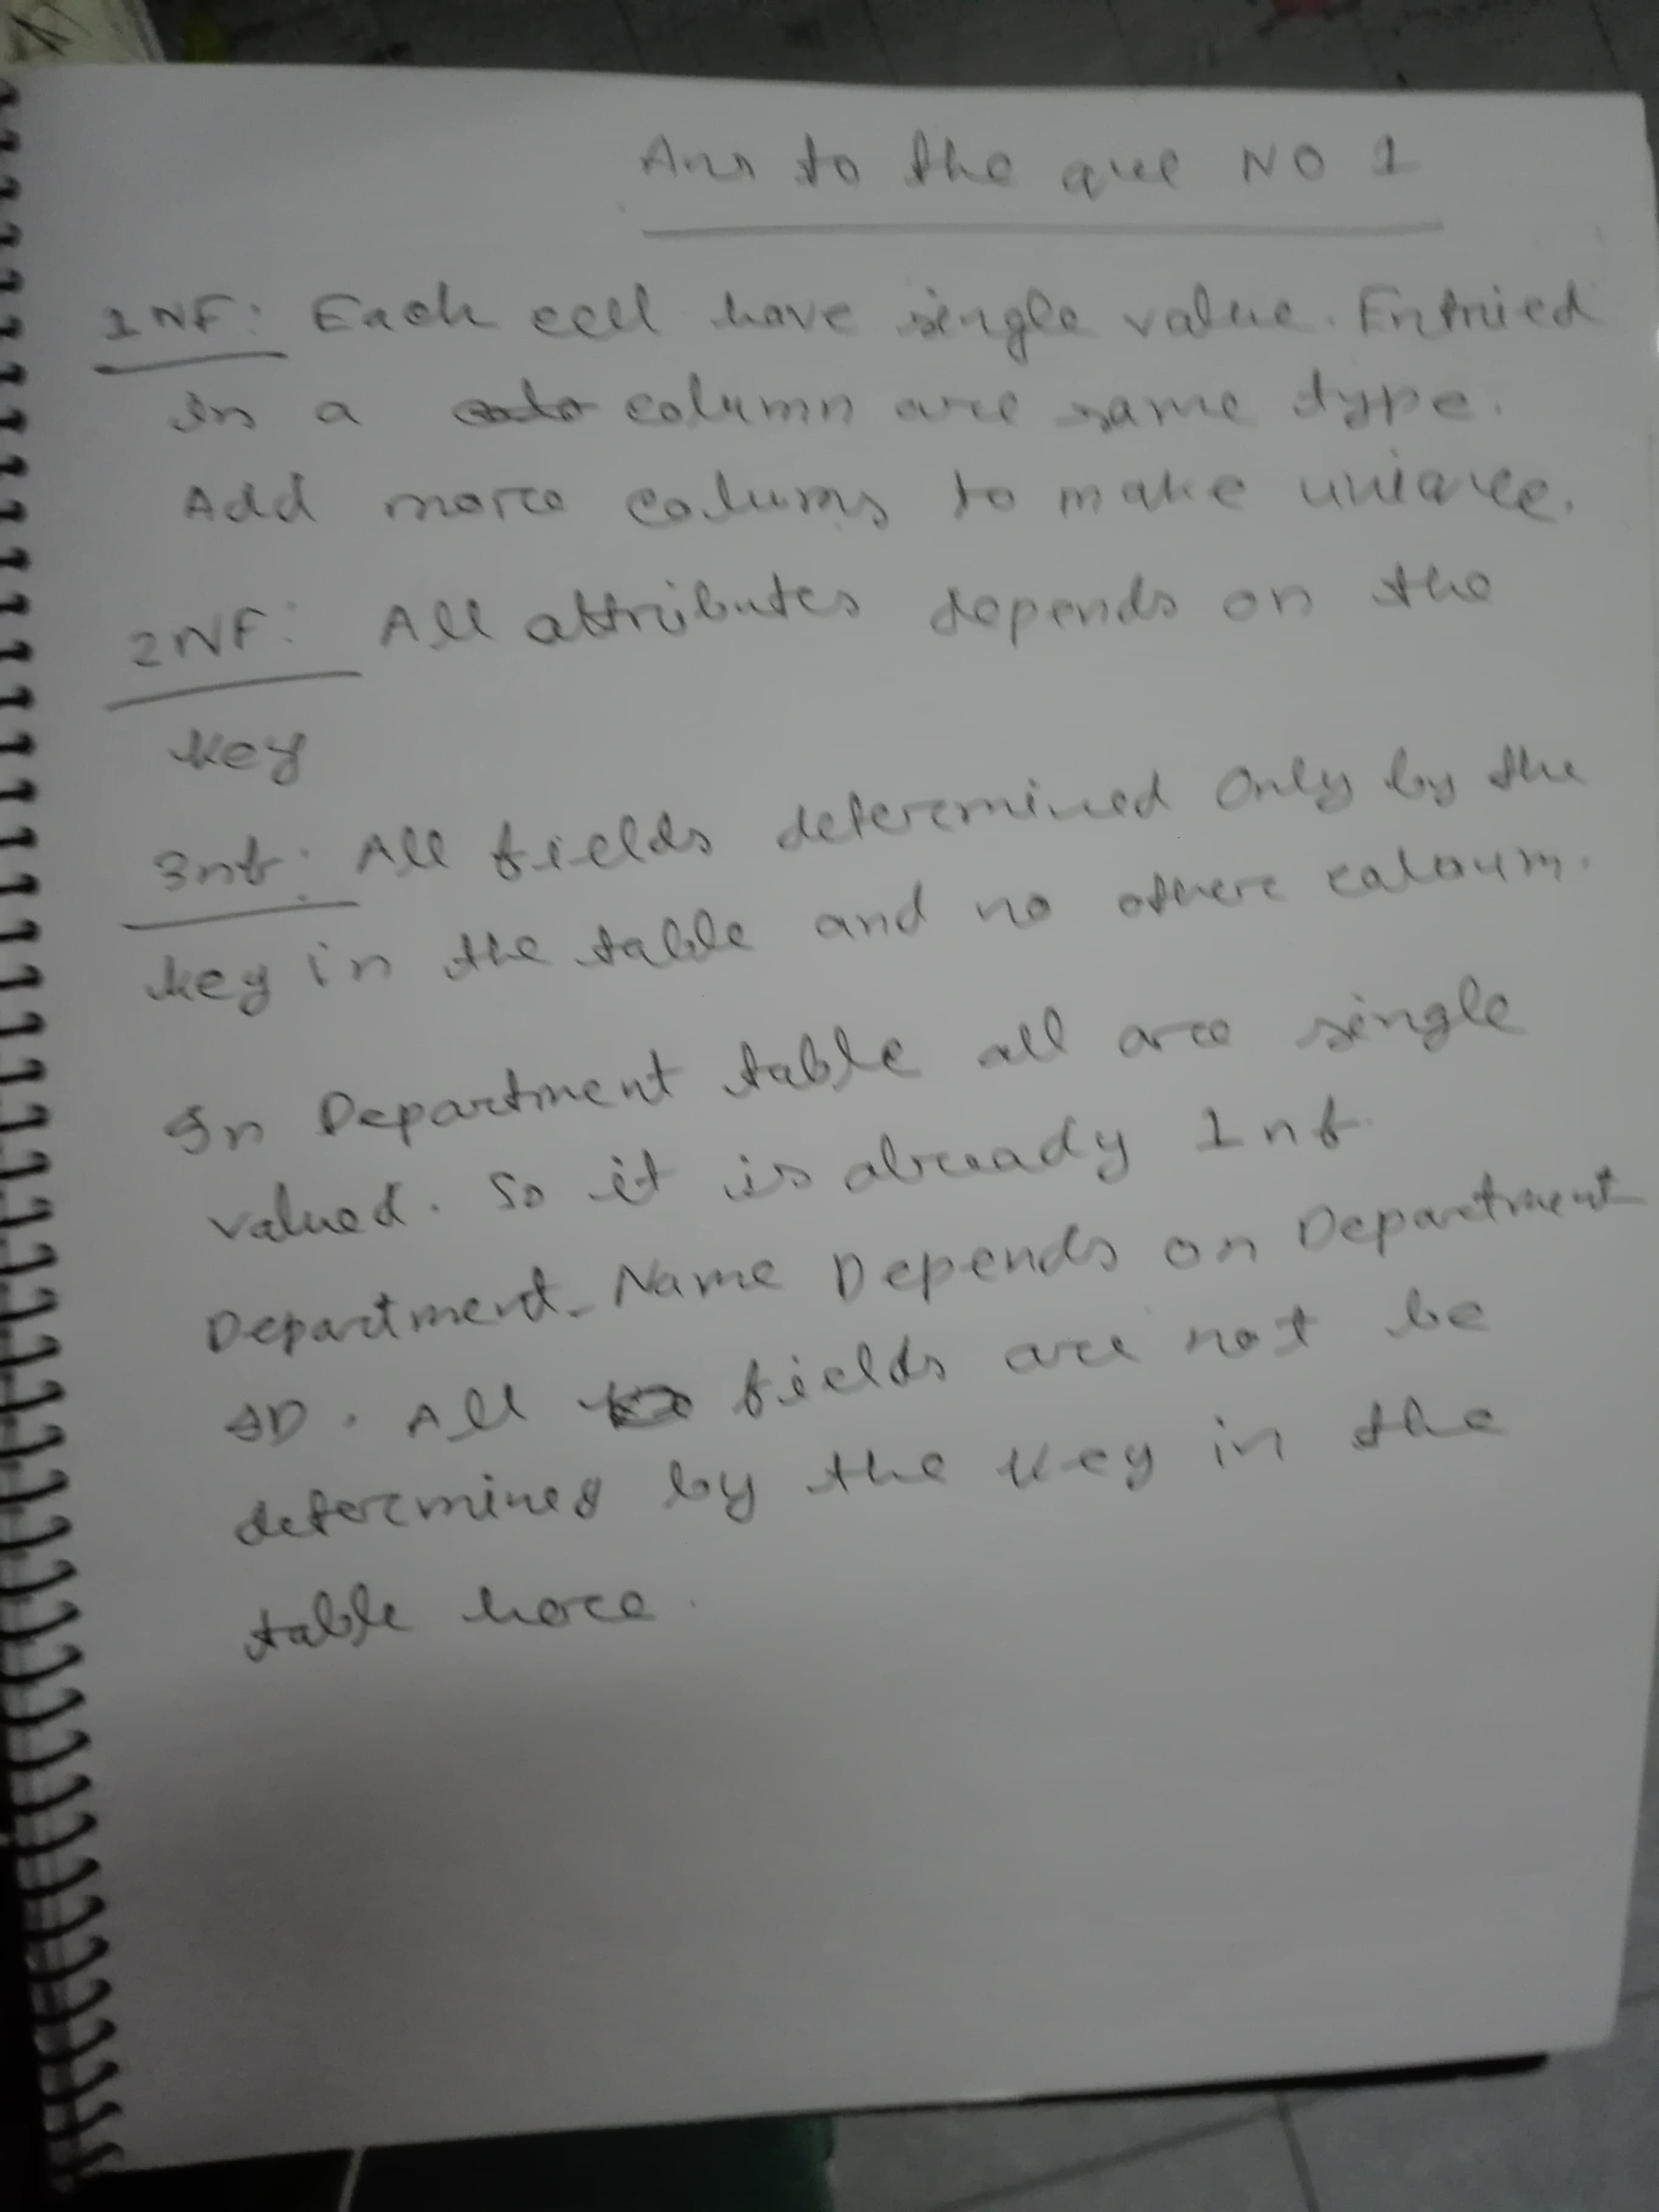 Ans to the que NO 1
1NF: Each cell have single value. Entried
in a column are same type.
Add more colums to make unique.
2NF: All attributes depends on the
key
3nf: All fields determined only by the
key in the table and no other caloum.
In Department table all are single
valued. So it is already 1nf.
Department_Name Depends on Department
ID. All fields are not be
determined by the key in the
table here.